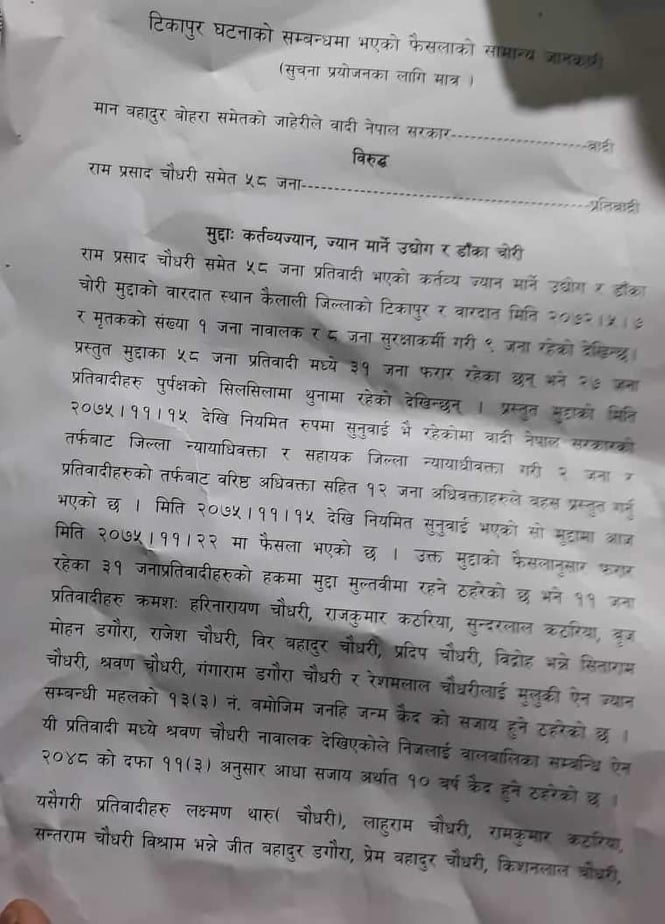 टिकापुर घटनाको सम्बन्धमा भएको फैसलाको सामान्य जानकारी
(सुचना प्रयोजनका लागि मात्र ।
मान बहादुर बोहरा समेतको जाहेरीले वादी नेपाल सरकार-----------------------वादी
विरुद्ध
राम प्रसाद चौधरी समेत ५८ जना-------------------------------------------------प्रतिवादी
मुद्दाः कर्तव्यज्यान, ज्यान मार्ने उद्योग र डाँका चोरी
राम प्रसाद चौधरी समेत ५८ जना प्रतिवादी भएको कर्तव्य ज्यान मार्ने उद्योग र डाँका
चोरी मुद्दाको वारदात स्थान कैलाली जिल्लाको टिकापुर र वारदात मिति २०७२।५।७
र मृतकको संख्या १ जना नावालक र ८ जना सुरक्षाकर्मी गरी ९ जना रहेको देखिन्छ।
प्रस्तुत मुद्दाका ५८ जना प्रतिवादी मध्ये ३१ जना फरार रहेका छन् भने २७ जना
प्रतिवादीहरु पुर्पक्षको सिलसिलामा थुनामा रहेको देखिन्छन् । प्रस्तुत मुद्दाको मिति
२०७५।११।१५ देखि नियमित रुपमा सुनुवाई भै रहेकोमा वादी नेपाल सरकारको
तर्फबाट जिल्ला न्यायाधिवक्ता र सहायक जिल्ला न्यायाधीवक्ता गरी २ जना र
प्रतिवादीहरुको तर्फबाट वरिष्ठ अधिवक्ता सहित १२ जना अधिवक्ताहरुले वहस प्रस्तुत गर्नु
भएको छ । मिति २०७५।११।१५ देखि नियमित सुनुवाई भएको सो मुद्दामा आज
मिति २०७५।११।२२ मा फैसला भएको छ । उक्त मुद्दाको फैसलानुसार फरार
रहेका ३१ जनाप्रतिवादीहरुको हकमा मुद्दा मुल्तवीमा रहने ठहरेको छ भने ११ जना
प्रतिवादीहरु क्रमशः हरिनारायण चौधरी, राजकुमार कठरिया, सुन्दरलाल कठरिया, वृज
मोहन डगौरा, राजेश चौधरी, विर बहादुर चौधरी, प्रदिप चौधरी, विद्रोह भन्ने सिताराम
चौधरी, श्रवण चौधरी, गंगाराम डगौरा चौधरी र रेशमलाल चौधरीलाई मुलुकी ऐन ज्यान
सम्बन्धी महलको १३(३) नं. वमोजिम जनहि जन्म कैद को सजाय हुने ठहरेको छ ।
यी प्रतिवादी मध्ये श्रवण चौधरी नावालक देखिएकोले निजलाई वालबालिका सम्बन्धि ऐन
२०४८ को दफा ११(३) अनुसार आधा सजाय अर्थात १० वर्ष कैद हुने ठहरेको छ ।
यसैगरी प्रतिवादीहरु लक्ष्मण थारु( चौधरी), लाहुराम चौधरी, रामकुमार कठरिया,
सन्तराम चौधरी विश्राम भन्ने जीत बहादुर डगौरा, प्रेम बहादुर चौधरी, किशनलाल चौधरी,